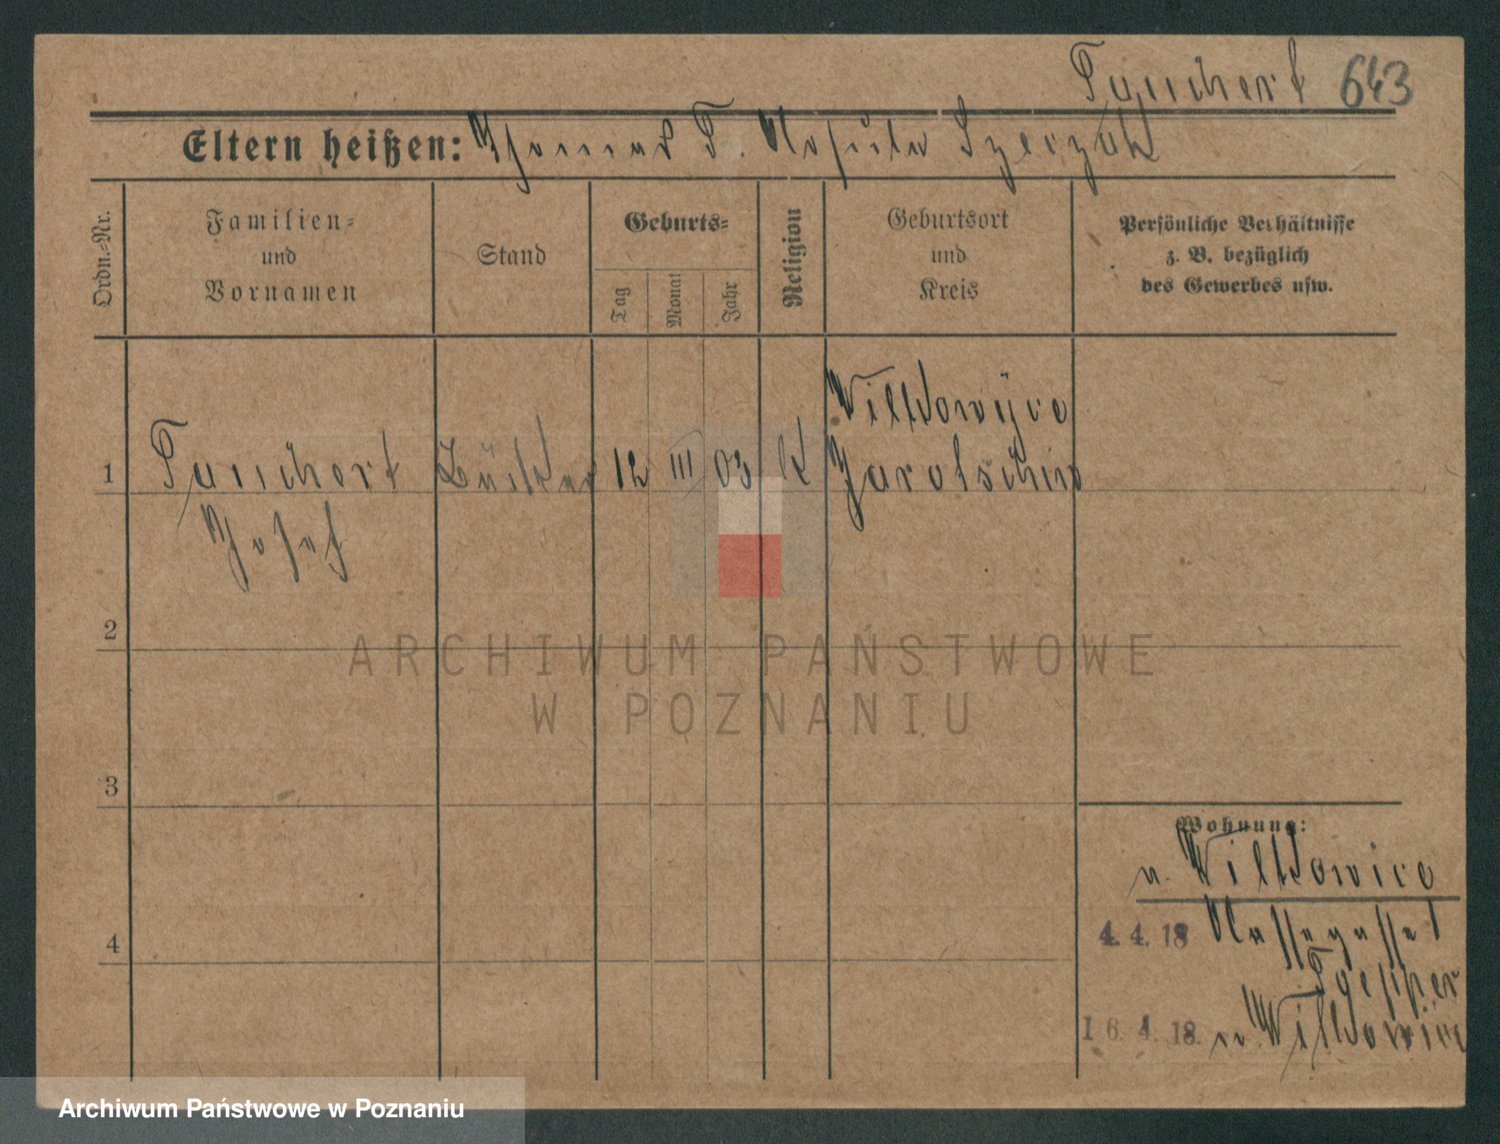 Tauchert 643
Eltern heißen: Thomas T. Rosalie Szerzak
Ordn.=Nr.
Familien=
und
Vornamen
Stand
Geburts=
Tag
Monat
Jahr
Religion
Geburtsort
und
Kreis
Persönliche Verhältnisse
z. B. bezüglich
des Gewerbes usw.
1 Tauchert 12 III 03 K Jarotschin
Josef
2
3
4
Wohnung:
4. 4. 18
16. 4. 18.
ARCHIWUM PAŃSTWOWE
W POZNANIU
Archiwum Państwowe w Poznaniu